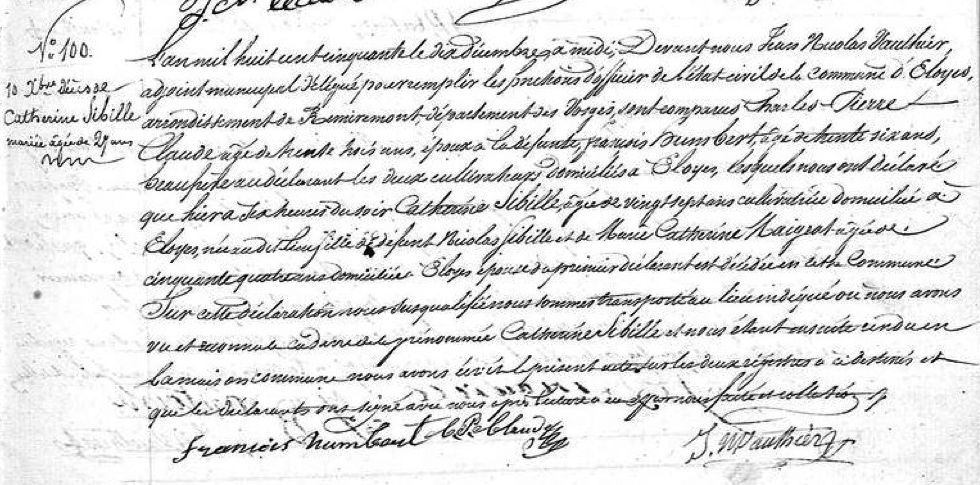 No. 100.
10 Xbre décès de
Catherine Sibille
mariée âgée de 27 ans
L'an mil huit cent cinquante le dix décembre, à midi, Devant nous Jean Nicolas Vauthier,
adjoint municipal délégué pour remplir les fonctions d'officier de l'état civil de la commune d'Eloyes,
arrondissement de Remiremont, département des Vosges, sont comparus Charles-Pierre
Claude âgé de trente trois ans, époux à la défunte, françois humbert, âgé de trente six ans,
beaupère au déclarant les deux cultivateurs domiciliés à Eloyes, lesquels nous ont déclaré
que hier à six heures du soir Catherine Sibille, âgée de vingt sept ans cultivatrice domiciliée à
Eloyes, née audit lieu fille de défunt Nicolas Sibille et de Marie Catherine Maigrot âgée de
cinquante quatre ans domiciliée à Eloyes épouse du premier déclarant est décédée en cette Commune
Sur cette déclaration nous susqualifié nous sommes transporté au lieu indiqué où nous avons
vu et reconnu le cadavre de la prénommée Catherine Sibille et nous étant ensuite rendu en
la maison commune nous avons écrit le présent acte sur les deux régistres à ce destinés et
que les déclarants ont signé avec nous après lecture à eux par nous faite et collation
François humbert C P Claude J. N. Vauthier